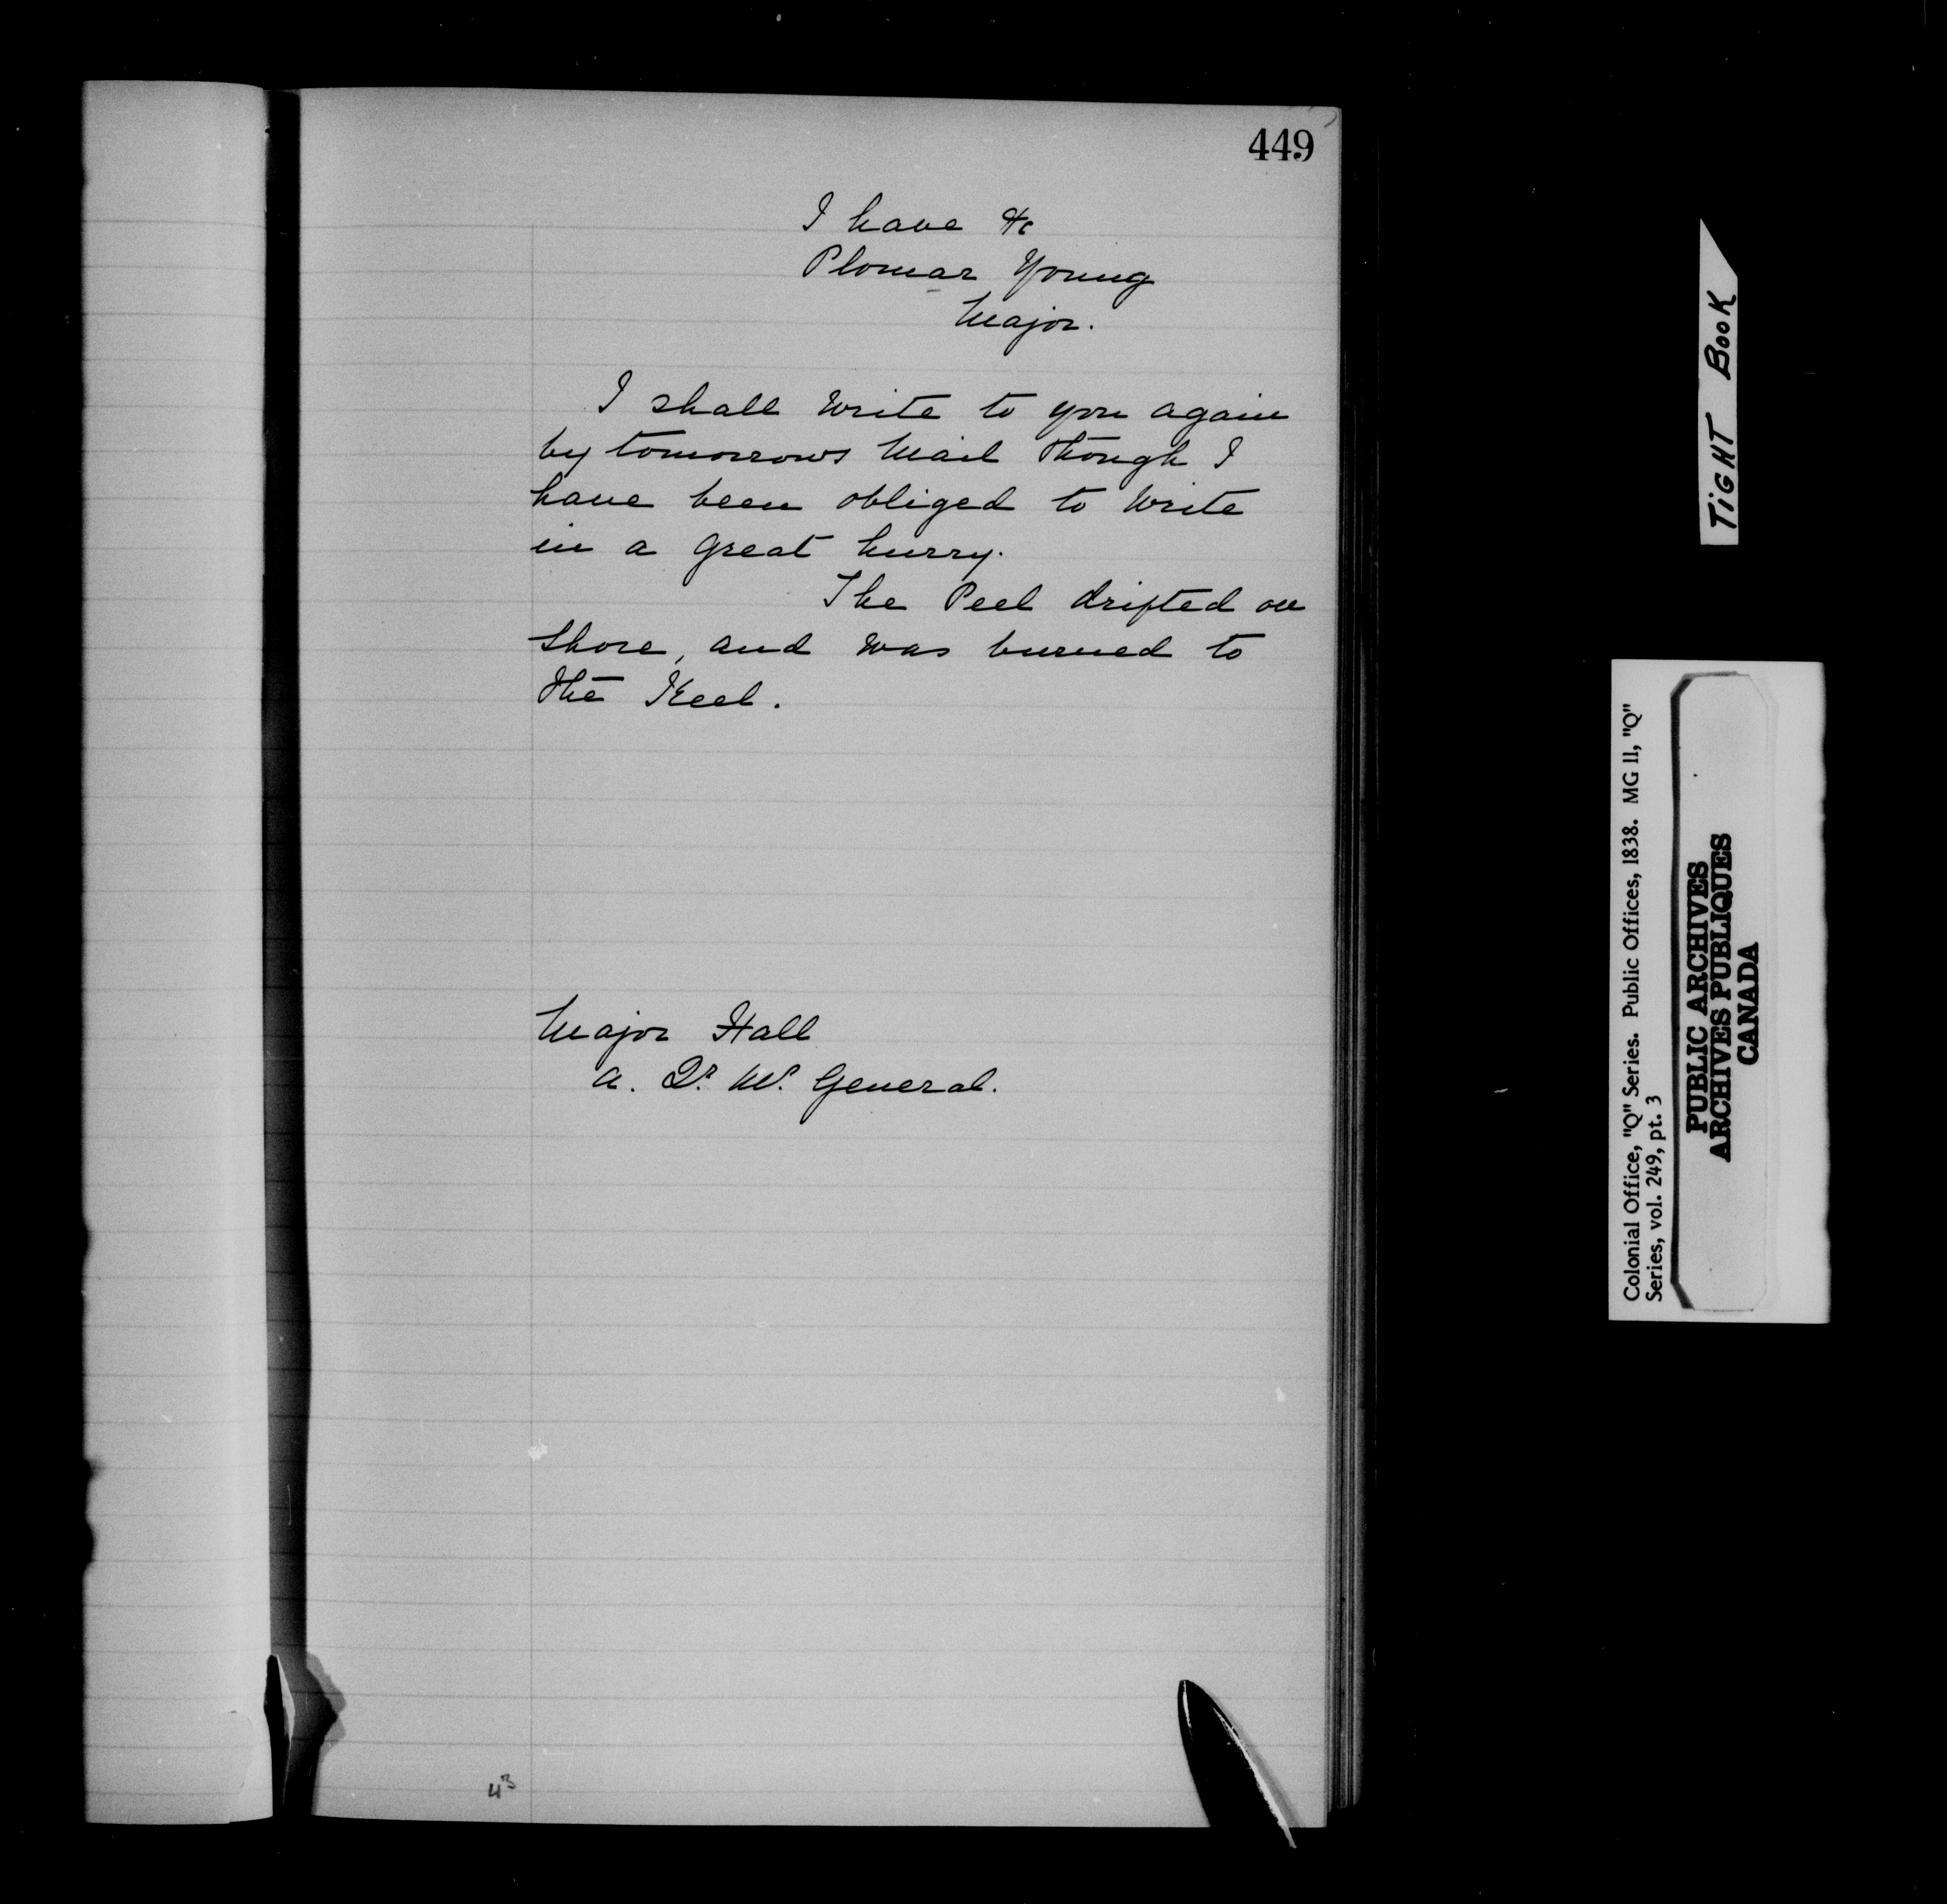 449
I have &c
Plomar Young
Major.
I shall write to you again
by tomorrows Mail though I
have been obliged to write
in a great hurry.
The Peel drifted on
shore, and was burned to
the Keel.
Major Hall
A. Qr. Mr. General.
43
TIGHT BOOK
Colonial Office, "Q" Series. Public Offices, 1838. MG 11, "Q"
Series, vol. 249, pt. 3
PUBLIC ARCHIVES
ARCHIVES PUBLIQUES
CANADA